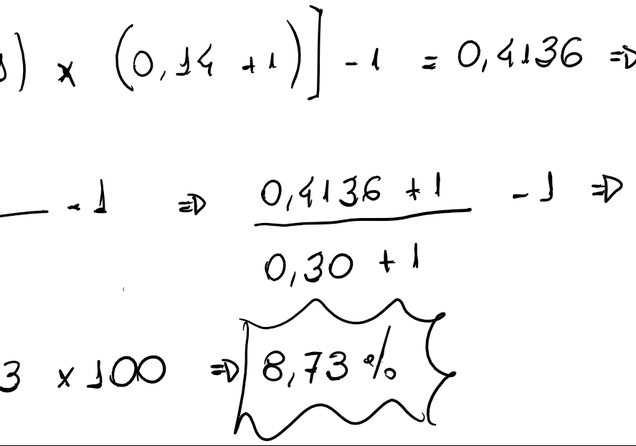 ) x (0,14 + 1)] - 1 = 0,4136 ⇒
- 1 ⇒ (0,4136 + 1) / (0,30 + 1) - 1 ⇒
3 x 100 ⇒ 8,73 %